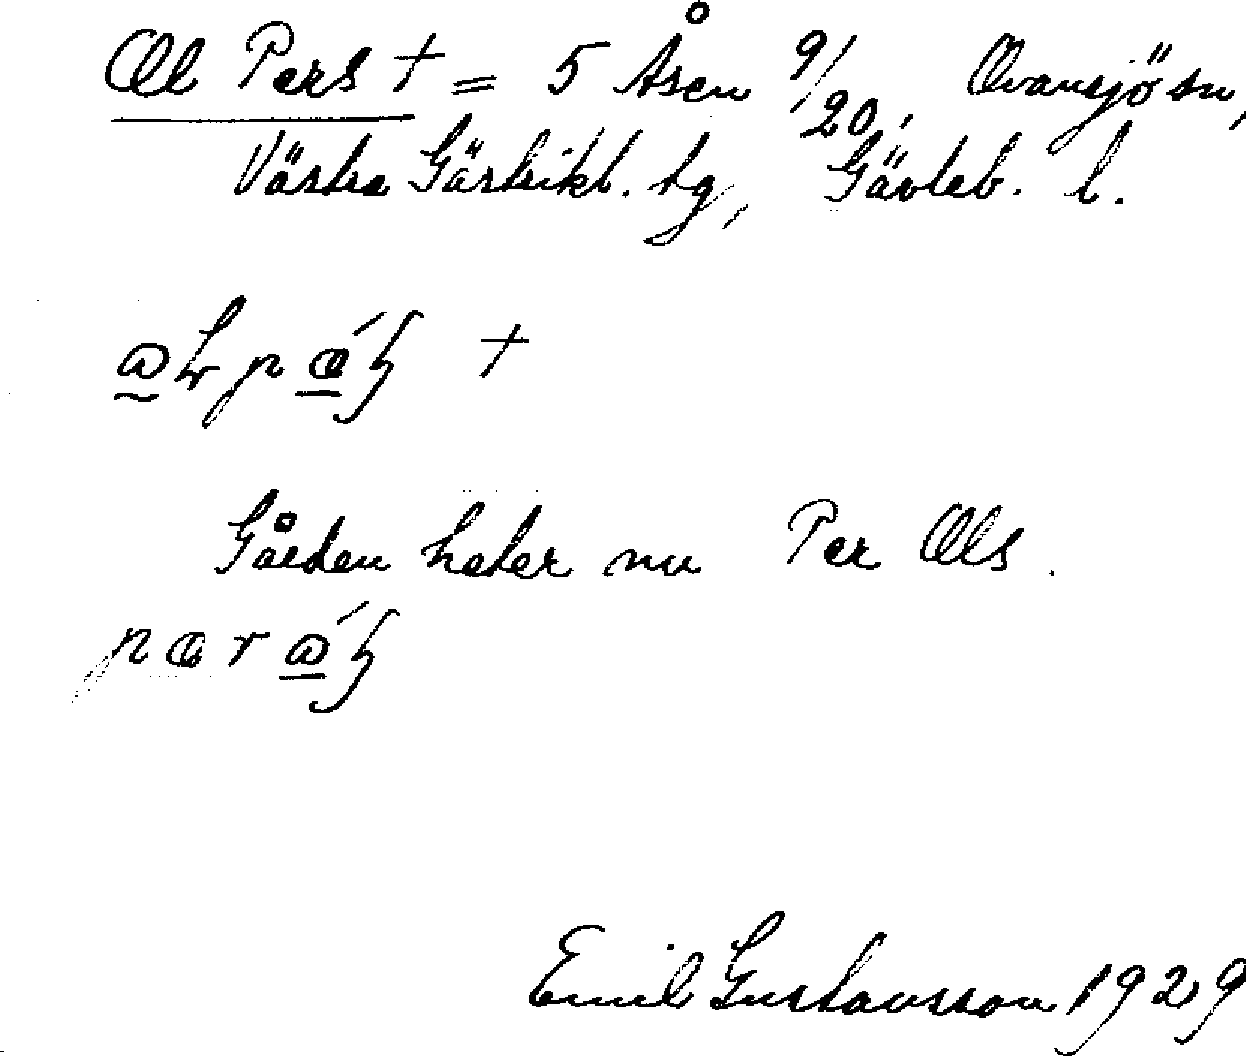 Ol Pers † = 5 Åsen 9/20, Ovansjö sn,
Västra Gästrikl. tg, Gävleb. l.
†
Gården heter nu Per Ols.
Emil Gustavsson 1929